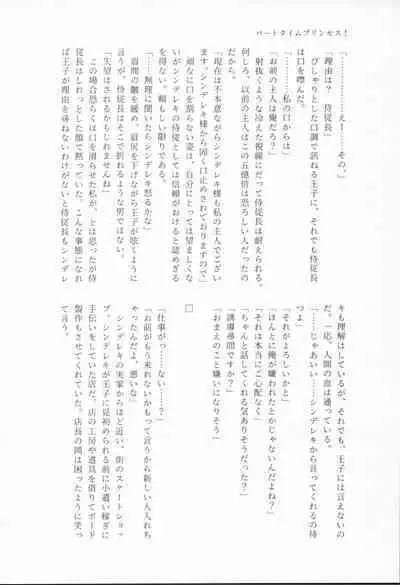 パートタイムプリンセス！
「…………えー……その、」
「理由は？　侍従長」
ぴしゃりとした口調で訊ねる王子に、それでも侍従長
は口を噤んだ。
「…………私の口からは」
「お前の主人は俺だろ？」
射抜くような冷えた視線にだって侍従長は耐えられる。
何しろ、以前の主人はこの五億倍は恐ろしい人だったの
だから。
「現在は不本意ながらシンデレキ様も私の主人でござい
ます。シンデレキ様から固く口止めされておりますので」
頑なに口を割らない姿は、自分にとっては望ましくな
いがシンデレキの侍従としては信頼がおけると認めざる
を得ない。頼もしい限りである。
「……無理に聞いたらシンデレキ怒るかな」
「失望はされるかもしれませんね」
眉間を皺め、眉尻を下げながら王子が呟くように
言うが、侍従長はそこで折れるような男ではない。
この場合恐らくは口を滑らせた私が、とは思ったが侍
従長はしれっとした顔で黙っていた。こんな事態になれ
ば王子が理由を尋ねないわけがないと侍従長もシンデレ
キも理解はしているが、それでも、王子には言えないの
だ。一応、人間の血は通っている。
「……じゃあいい……シンデレキから言ってくれるの待
つよ」
「それがよろしいかと」
「ほんとに俺が嫌われたとかじゃないんだよね？」
「それは本当にご心配なく」
「ちゃんと話してくれる気ありそうだった？」
「誘導尋問ですか？」
「おまえのこと嫌いになりそう」
□
「仕事がっ……ない……？」
「お前がもう来れないかもって言うから新しい人入れち
ゃったんだよ、悪いな」
シンデレキの実家からほど近い、街のスケートショッ
プ。シンデレキが王子に見初められる前に小遣い稼ぎに
手伝いをしていた店だ。店の工房や道具を借りてボード
製作もさせてくれていた。店長の岡は困ったように笑っ
て言う。